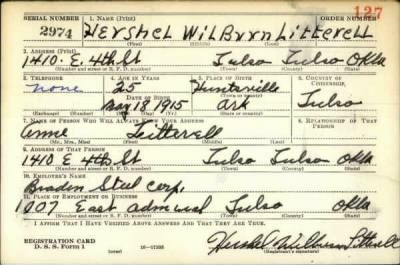 127
SERIAL NUMBER 1. NAME (Print) ORDER NUMBER
2974 Hershel Wilburn Litterell
(First) (Middle) (Last)
2. ADDRESS (Print)
1410. E. 4th St Tulsa Tulsa Okla
(Number and street or R. F. D. number) (Town) (County) (State)
3. TELEPHONE 4. AGE IN YEARS 5. PLACE OF BIRTH 6. COUNTRY OF CITIZENSHIP
none 25 Huntsville
DATE OF BIRTH (Town or county)
May 18 1915 Ark Tulsa
(Exchange) (Number) (Mo.) (Day) (Yr.) (State or country)
7. NAME OF PERSON WHO WILL ALWAYS KNOW YOUR ADDRESS 8. RELATIONSHIP OF THAT PERSON
Litterell
(Mr., Mrs., Miss) (First) (Middle) (Last)
9. ADDRESS OF THAT PERSON
1410 E 4th St Tulsa Tulsa Okla
(Number and street or R. F. D. number) (Town) (County) (State)
10. EMPLOYER'S NAME
Corp.
11. PLACE OF EMPLOYMENT OR BUSINESS
1007 East Admiral Tulsa Okla
(Number and street or R. F. D. number) (Town) (County) (State)
I AFFIRM THAT I HAVE VERIFIED ABOVE ANSWERS AND THAT THEY ARE TRUE.
REGISTRATION CARD
D. S. S. Form 1 (over) Hershel Wilburn Litterell
(Registrant's signature)